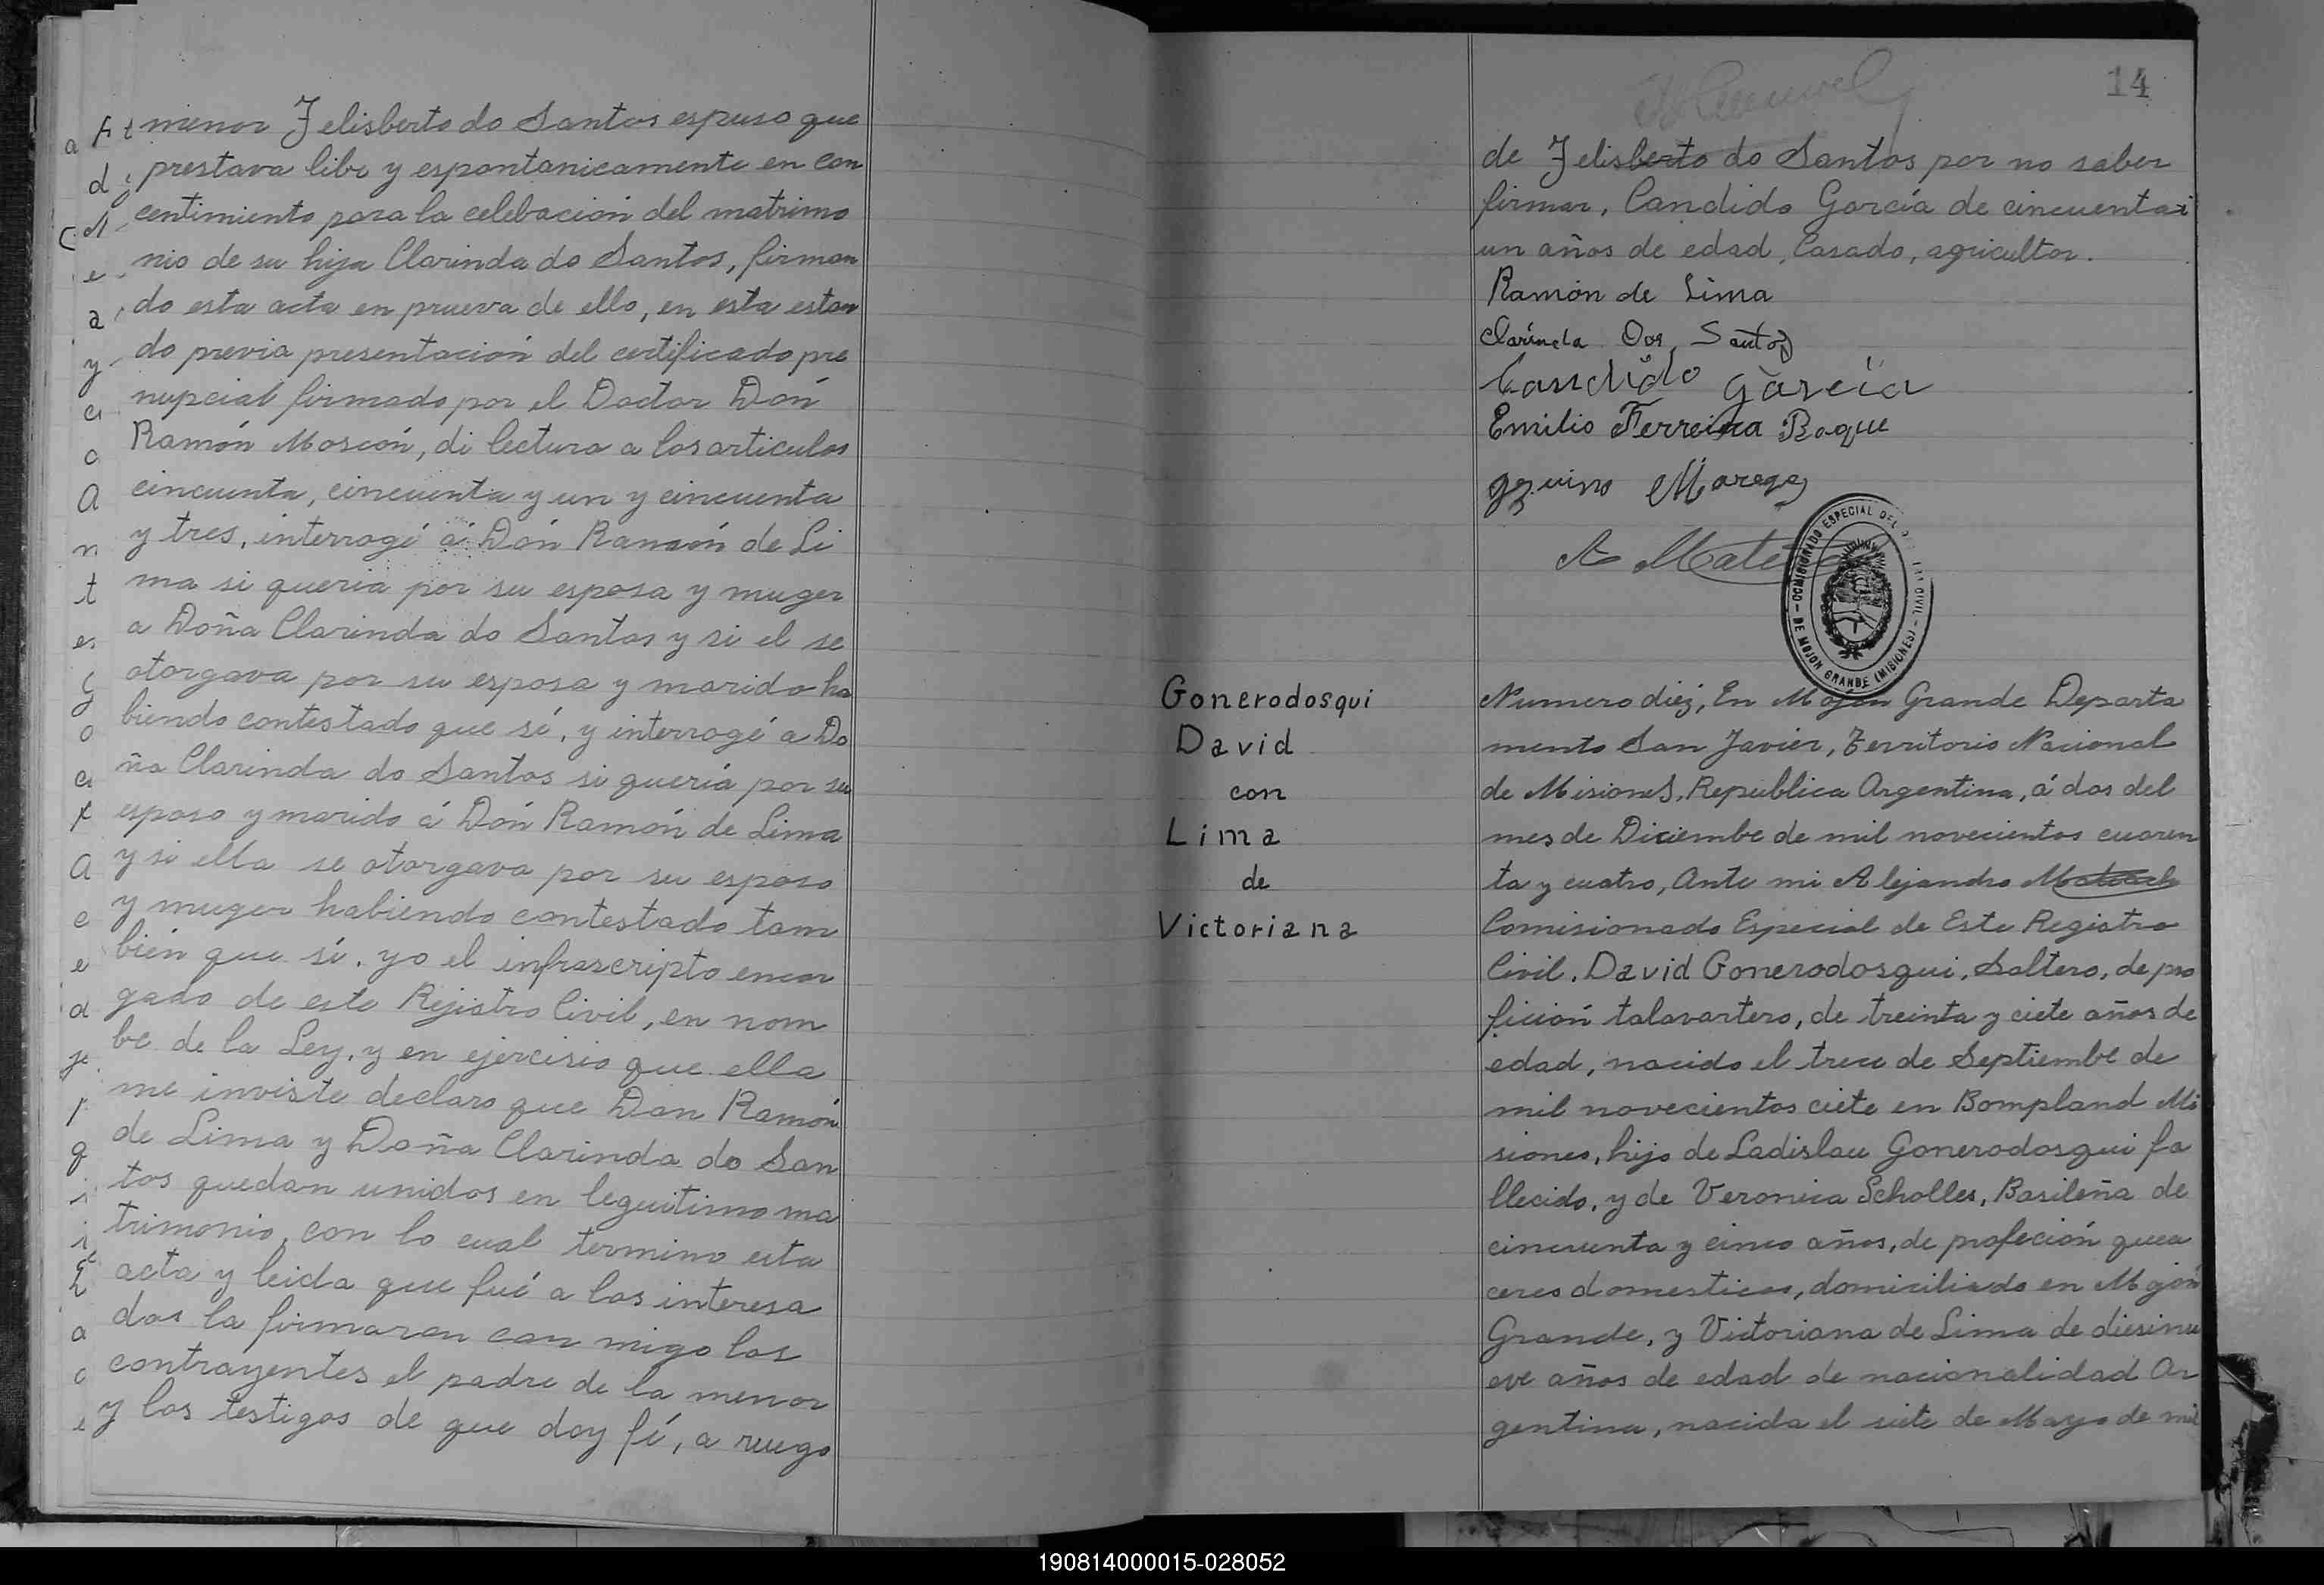 menor Felisberto do Santos espuso que
prestava libe y espontanicamente en con
centimiento para la celebación del matrimo
nio de su hija Clarinda do Santos, firman
do esta acta en prueva de ello, en esta estan
do previa presentación del certificado pre
nupcial firmado por el Doctor Dón
Ramón Moscón, di lectura a los articulos
cincuenta, cincuenta y un y cincuenta
y tres, interrogé á Dón Ramón de Li
ma si queria por su esposa y muger
a Doña Clarinda do Santos y si el se
otorgava por su esposa y marido ha
biendo contestado que sé, y interrogé a Do
ña Clarinda do Santos si quería por su
esposo y marido á Dón Ramón de Lima
y si ella se otorgava por su esposo
y muger habiendo contestado tam
bién que sí. yo el infrascripto encar
gado de este Rejistro Civil, en nom
be de la Ley, y en ejercisio que ella
me inviste declaro que Don Ramón
de Lima y Doña Clarinda do San
tos quedan unidos en leguitimo ma
trimonio, con lo cual termino esta
acta y leida que fué a los interesa
dos la firmaron con migo los
contrayentes el padre de la menor
y los testigos de que doy fé, a ruego
14
de Felisberto do Santos por no saber
firmar, Candido García de cincuentai
un años de edad, Casado, agricultor.
Ramón de Lima
Clarinda Dos Santos
Candido Garcia
Emilio Ferreira Roque
A Mate
COMISIONADO ESPECIAL DEL CIVIL - DE MOJON GRANDE (MISIONES) -
Gonerodosqui
David
con
Lima
de
Victoriana
Numero diéz, En Mojón Grande Departa
mento San Javier, Territorio Nacional
de Misiones, Republica Argentina, á dos del
mes de Diciembe de mil novecientos cuaren
ta y cuatro, Ante mi Alejandro
Comisionado Especial de Este Registro
Civil. David Gonerodosqui, Soltero, de pro
fición talavartero, de treinta y ciete años de
edad, nacido el trece de Septiembe de
mil novecientos ciete en Bompland Mi
siones, hijo de Ladislau Gonerodosqui fa
llecido, y de Veronica Scholles, Basileña de
cincuenta y cinco años, de profeción quea
ceres domesticos, domiciliado en Mojón
Grande, y Victoriana de Lima de diesinu
eve años de edad de nacionalidad Ar
gentina, nacida el siete de Mayo de mil
190814000015-028052